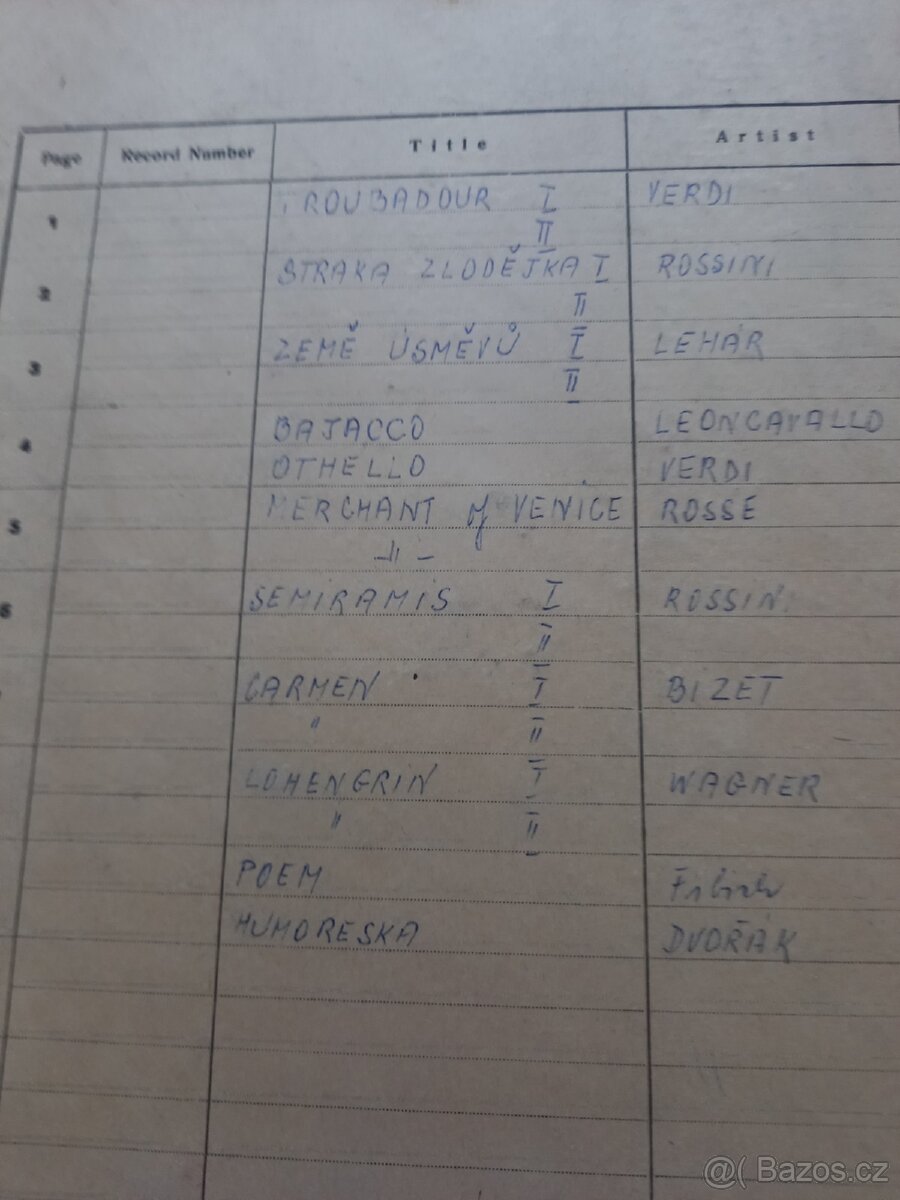 Page Record Number Title Artist
1 TROUBADOUR I VERDI
II
2 STRAKA ZLODĚJKA I ROSSINI
II
3 ZEMĚ ÚSMĚVŮ I LEHÁR
II
4 BAJACCO LEONCAVALLO
OTHELLO VERDI
5 MERCHANT of VENICE ROSSE
—II—
6 SEMIRAMIS I ROSSINI
II
CARMEN I BIZET
" II
LOHENGRIN I WAGNER
" II
POEM
HUMORESKA DVOŘÁK
@( Bazos.cz